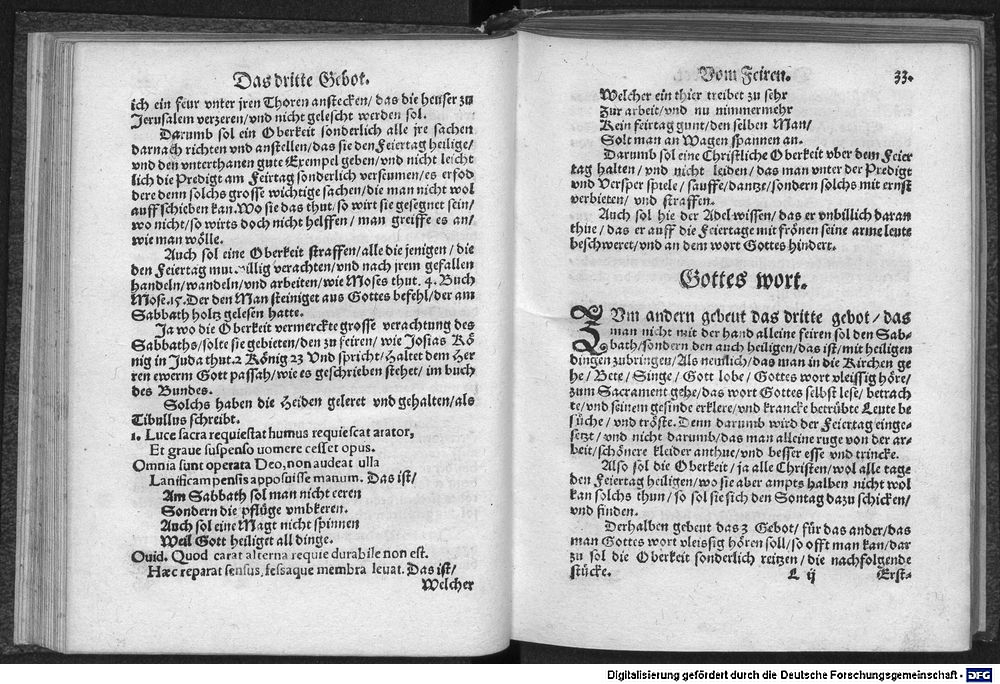 Das dritte Gebot.
ich ein feur vnter jren Thoren anstecken/ das die heuser zu
Jerusalem verzeren/vnd nicht gelescht werden sol.
Darumb sol ein Oberkeit sonderlich alle jre sachen
darnach richten vnd anstellen/das sie den Feiertag heilige/
vnd den vnterthanen gute Exempel geben/vnd nicht leicht
lich die Predigt am Feirtag sonderlich verseumen/es erfod
dere denn solchs grosse wichtige sachen/die man nicht wol
auffschieben kan. Wo sie das thut/so wirt sie gesegnet sein/
wo nicht/so wirts doch nicht helffen/ man greiffe es an/
wie man wölle.
Auch sol eine Oberkeit straffen/alle die jenigen/ die
den Feiertag mutwillig verachten/vnd nach jrem gefallen
handeln/wandeln/vnd arbeiten/wie Moses thut. 4. Buch
Mose.15. Der den Man steiniget aus Gottes befehl/der am
Sabbath holtz gelesen hatte.
Ja wo die Oberkeit vermerckte grosse verachtung des
Sabbaths/solte sie gebieten/den zu feiren/ wie Josias Kö
nig in Juda thut.2 König 23 Vnd spricht/Haltet dem Her
ren ewerm Gott passah/wie es geschrieben stehet/im buch
des Bundes.
Solchs haben die Heiden geleret vnd gehalten/als
Tibullus schreibt.
1. Luce sacra requiestat humus requiescat arator,
Et graue suspenso uomere cesset opus.
Omnia sunt operata Deo, non audeat ulla
Lanificam pensis apposuisse manum. Das ist/
Am Sabbath sol man nicht eren
Sondern die pflüge vmbkeren.
Auch sol eine Magt nicht spinnen
Weil Gott heiliget all dinge.
Ouid. Quod carat alterna requie durabile non est.
Hæc reparat sensus, fessaque membra leuat. Das ist/
Welcher
Vom Feiren. 33.
Welcher ein thier treibet zu sehr
Zur arbeit/vnd nu nimmermehr
Kein feirtag gunt/den selben Man/
Solt man an Wagen spannen an.
Darumb sol eine Christliche Oberkeit vber dem Feier
tag halten/ vnd nicht leiden/ das man vnter der Predigt
vnd Versper spiele/ sauffe/dantze/sondern solchs mit ernst
verbieten/ vnd straffen.
Auch sol hie der Adel wissen/das er vnbillich daran
thue/ das er auff die Feiertage mit frönen seine arme leute
beschweret/vnd an dem wort Gottes hindert.
Gottes wort.
ZVm andern gebeut das dritte gebot/ das
man nicht mit der hand alleine feiren sol den Sab-
bath/sondern den auch heiligen/das ist/mit heiligen
dingen zubringen/Als nemlich/das man in die Kirchen ge
he/ Bete/ Singe/ Gott lobe/ Gottes wort vleissig höre/
zum Sacrament gehe/das wort Gottes selbst lese/ betrach
te/vnd seinem gesinde erklere/vnd krancke betrübte Leute be
süche/ vnd tröste. Denn darumb wird der Feiertag einge-
setzt/ vnd nicht darumb/das man alleine ruge von der ar-
beit/schönere kleider anthue/vnd besser esse vnd trincke.
Also sol die Oberkeit/ ja alle Christen/wol alle tage
den Feiertag heiligen/wo sie aber ampts halben nicht wol
kan solchs thun/ so sol sie sich den Sontag dazu schicken/
vnd finden.
Derhalben gebeut das 3 Gebot/ für das ander/das
man Gottes wort vleissig hören soll/so offt man kan/dar
zu sol die Oberkeit sonderlich reitzen/die nachfolgende
stücke. L ij Erst-
Digitalisierung gefördert durch die Deutsche Forschungsgemeinschaft - DFG